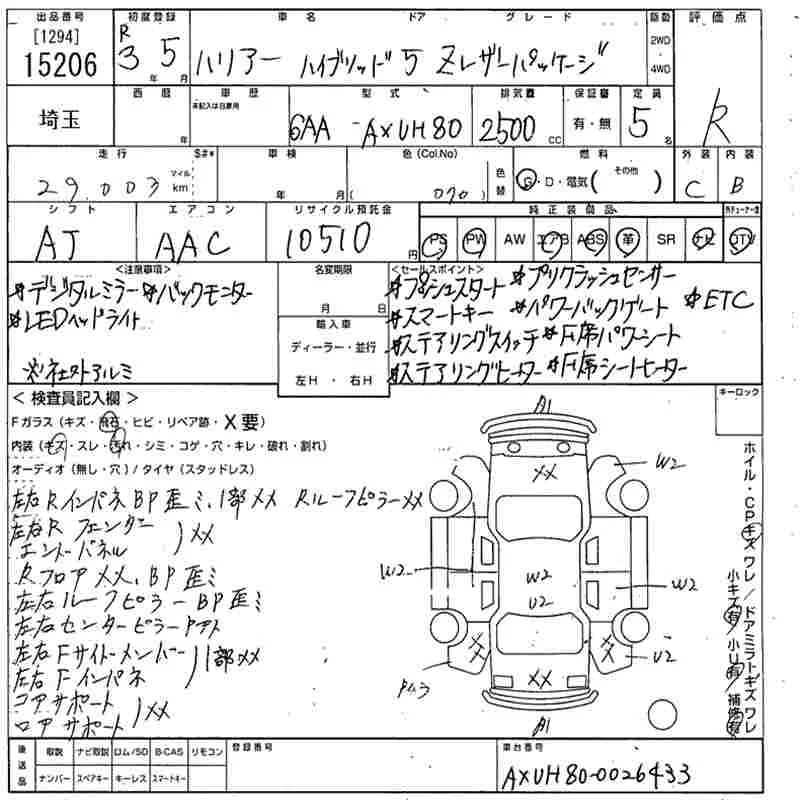 出品番号 初度登録 車名 ドア グレード 駆動 評価点
[1294] 15206 R3年5月 ハリアー ハイブリッド 5 Zレザーパッケージ 2WD 4WD R
西暦 車歴 型式 排気量 保証書 定員
埼玉 年 未記入は自家用 6AA-AXUH80 2500cc 有・無 5名
走行 S#* 車検 色(Col.No) 色替 燃料 外装 内装
29,003 マイル km 年 月 (070) G・D・電気(その他) C B
シフト エアコン リサイクル預託金 純正装備品
AT AAC 10510円 PS PW AW エアB ABS 革 SR ナビ DTV
<注意事項> 名変期限 <セールスポイント>
*デジタルミラー *バックモニター
*LEDヘッドライト
※社外アルミ
月 日
輸入車
ディーラー・並行
左H・右H
*プッシュスタート *プリクラッシュセンサー
*スマートキー *パワーバックゲート *ETC
*ステアリングスイッチ *F席パワーシート
*ステアリングヒーター *F席シートヒーター
<検査員記入欄> キーロック
Fガラス(キズ・飛石・ヒビ・リペア跡・X要)
内装(キズ・スレ・汚れ・シミ・コゲ・穴・キレ・破れ・割れ)
オーディオ(無し・穴)/タイヤ(スタッドレス)
左右RインパネBP歪ミ、1部XX RルーフピラーXX
左右R フェンダー
エンドパネル )XX
RフロアXX、BP歪ミ
左右ルーフピラーBP歪ミ
左右センターピラー
左右Fサイドメンバー
左右Fインパネ )1部XX
コアサポート
ロアサポート )XX
A1
XX
W2
W2
W2
U2
W2
XX
XX
U2
XX
A1
ホイル・CPキズ ワレ/ドアミラトキズ ワレ
小キズ有 小U有 補修有
後送品 取説 ナビ取説 ロム/SD B-CAS リモコン 登録番号 車台番号
ナンバー スペアキー キーレス スマートキー AXUH80-0026433